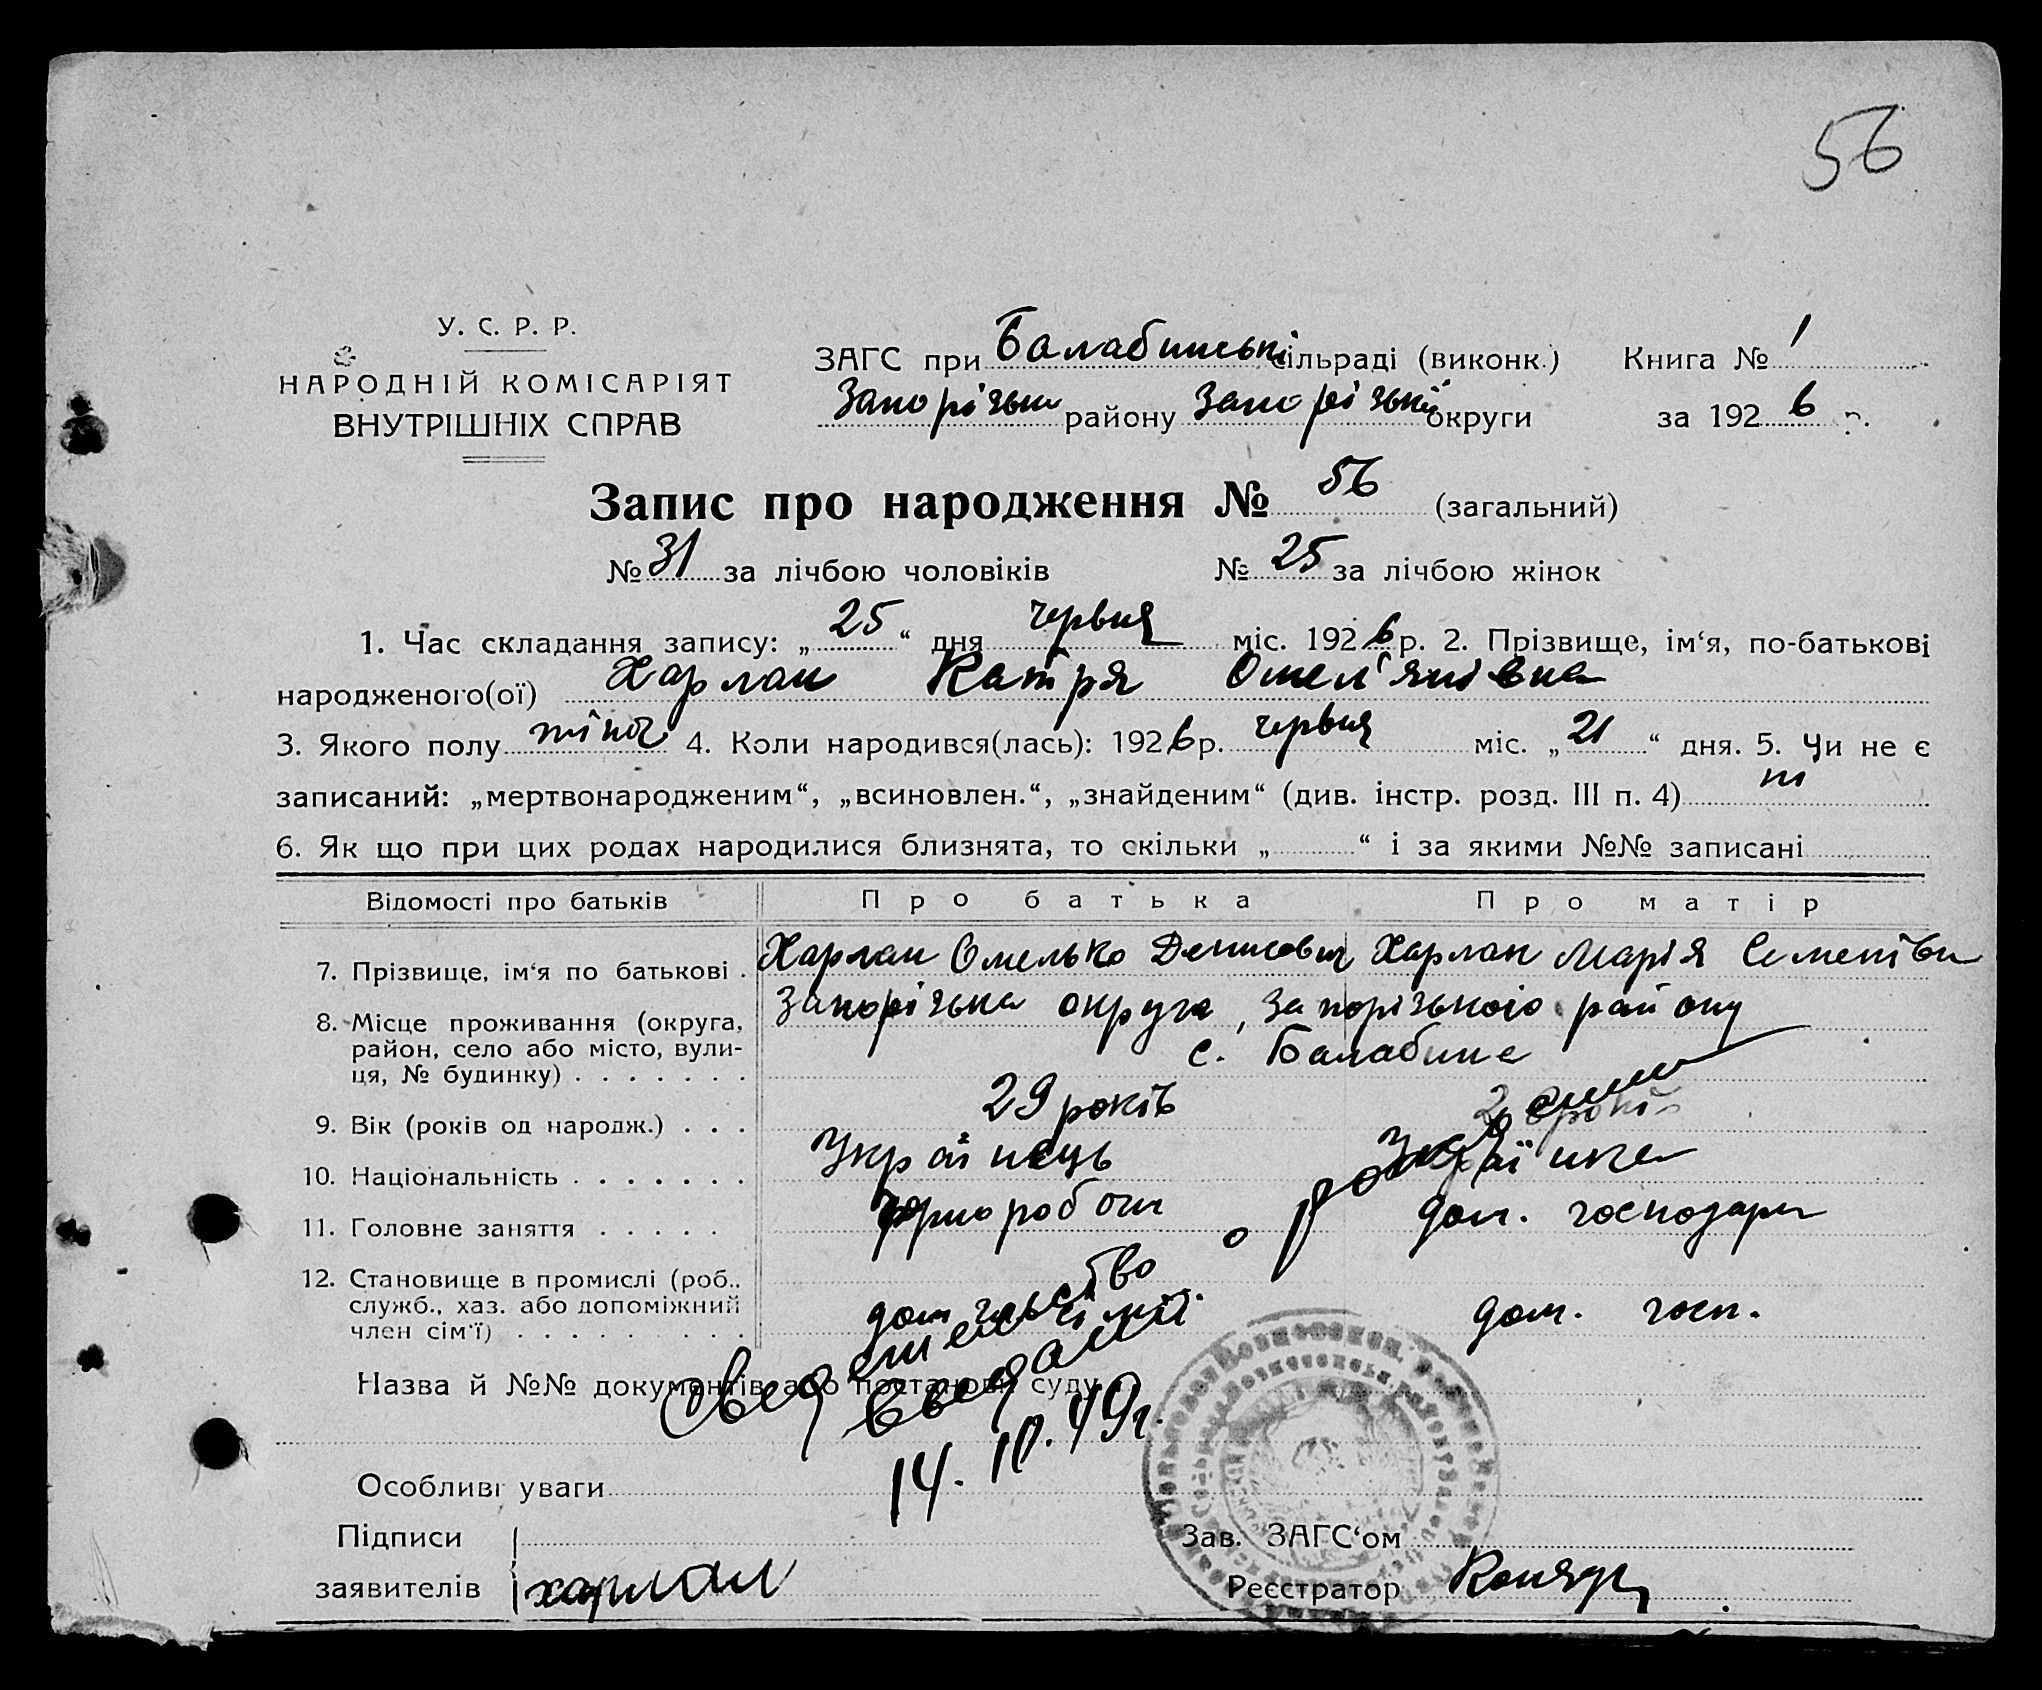 56
У. С. Р. Р.
НАРОДНІЙ КОМІСАРІЯТ
ВНУТРІШНІХ СПРАВ
ЗАГС при Балабинські сільраді (виконк.) Книга № 1
Запорізьк району Запорізької округи за 1926 р.
Запис про народження № 56 (загальний)
№ 31 за лічбою чоловіків № 25 за лічбою жінок
1. Час складання запису: „ 25 “ дня червня міс. 1926 р. 2. Прізвище, ім‘я, по-батькові
народженого(ої) Харлан Катря Омел'янівна
3. Якого полу жіноч 4. Коли народився(лась): 1926 р. червня міс. „ 21 “ дня. 5. Чи не є
записаний: „мертвонародженим“, „всиновлен.“, „знайденим“ (див. інстр. розд. III п. 4) ні
6. Як що при цих родах народилися близнята, то скільки „ “ і за якими №№ записані
Відомості про батьків Про батька Про матір
7. Прізвище, ім‘я по батькові . Харлан Омелько Денисович Харлан Марія Семенівн
8. Місце проживання (округа, Запорізька округа, Запорізького району
район, село або місто, вули- с. Балабине
ця, № будинку) . . . . . . .
9. Вік (років од нароdж.) . . . 29 років
10. Національність . . . . . . . Українець Українка
11. Головне заняття . . . . . Чорнороbоч дом. господарк
12. Становище в промислі (роб.,
служб., хаз. або допоміжний дом. дом. госп.
член сім‘ї) . . . . . . . . .
Назва й №№ документів або постанови суду
Свидетельство о рождении
14.10.49г.
Особливі уваги
Підписи Зав. ЗАГС‘ом
заявителів харлан Реєстратор